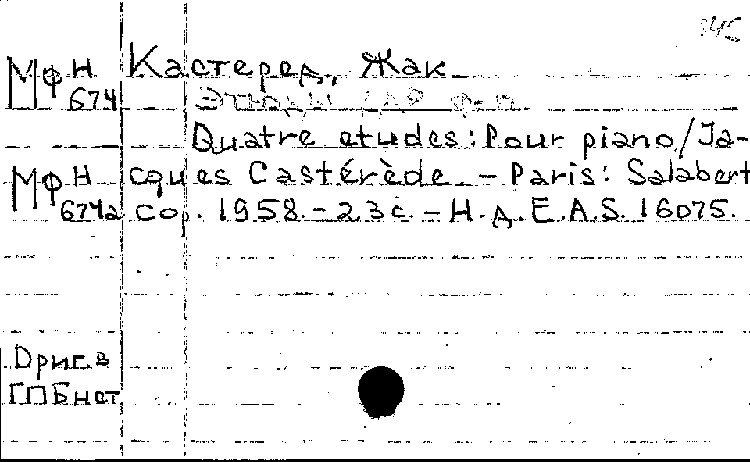 145
МФ Н 674 Кастеред, Жак
Этюды для ф-п.
Quatre etudes: Pour piano/Ja-
МФ Н 674а cques Castérède. - Paris: Salabert
cop. 1958. - 23 с. - Н. д. E.A.S. 16075.
Ориг. в
ГПБ нот